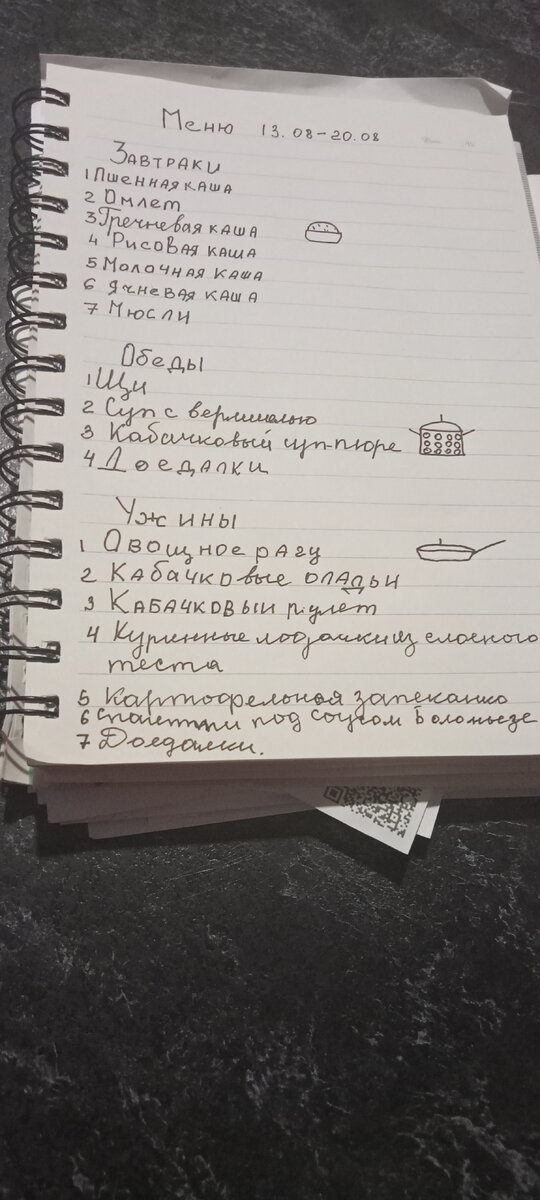 Меню 13.08-20.08
Завтраки
1 Пшенная каша
2 Омлет
3 Гречневая каша
4 Рисовая каша
5 Молочная каша
6 Ячневая каша
7 Мюсли
Обеды
1 Щи
2 Суп с вермишелью
3 Кабачковый суп-пюре
4 Доедалки
Ужины
1 Овощное рагу
2 Кабачковые оладьи
3 Кабачковый рулет
4 Куринные лодочки из слоеного
теста
5 Картофельная запеканка
6 Спагетти под соусом Болоньезе
7 Доедалки.